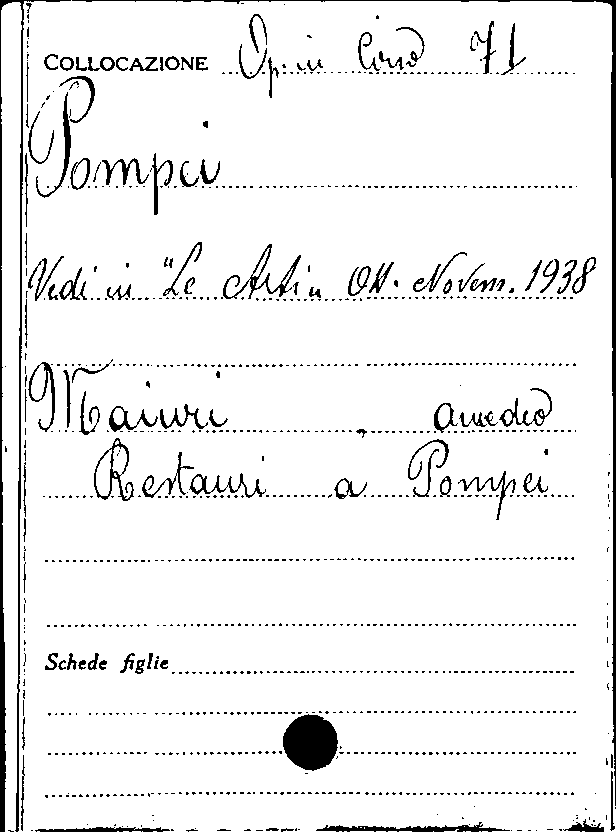 COLLOCAZIONE Op. in Corso 71
Pompei
Vedi in "Le Arti" Ott. Novem. 1938
Maiuri, Amedeo
Restauri a Pompei
Schede figlie